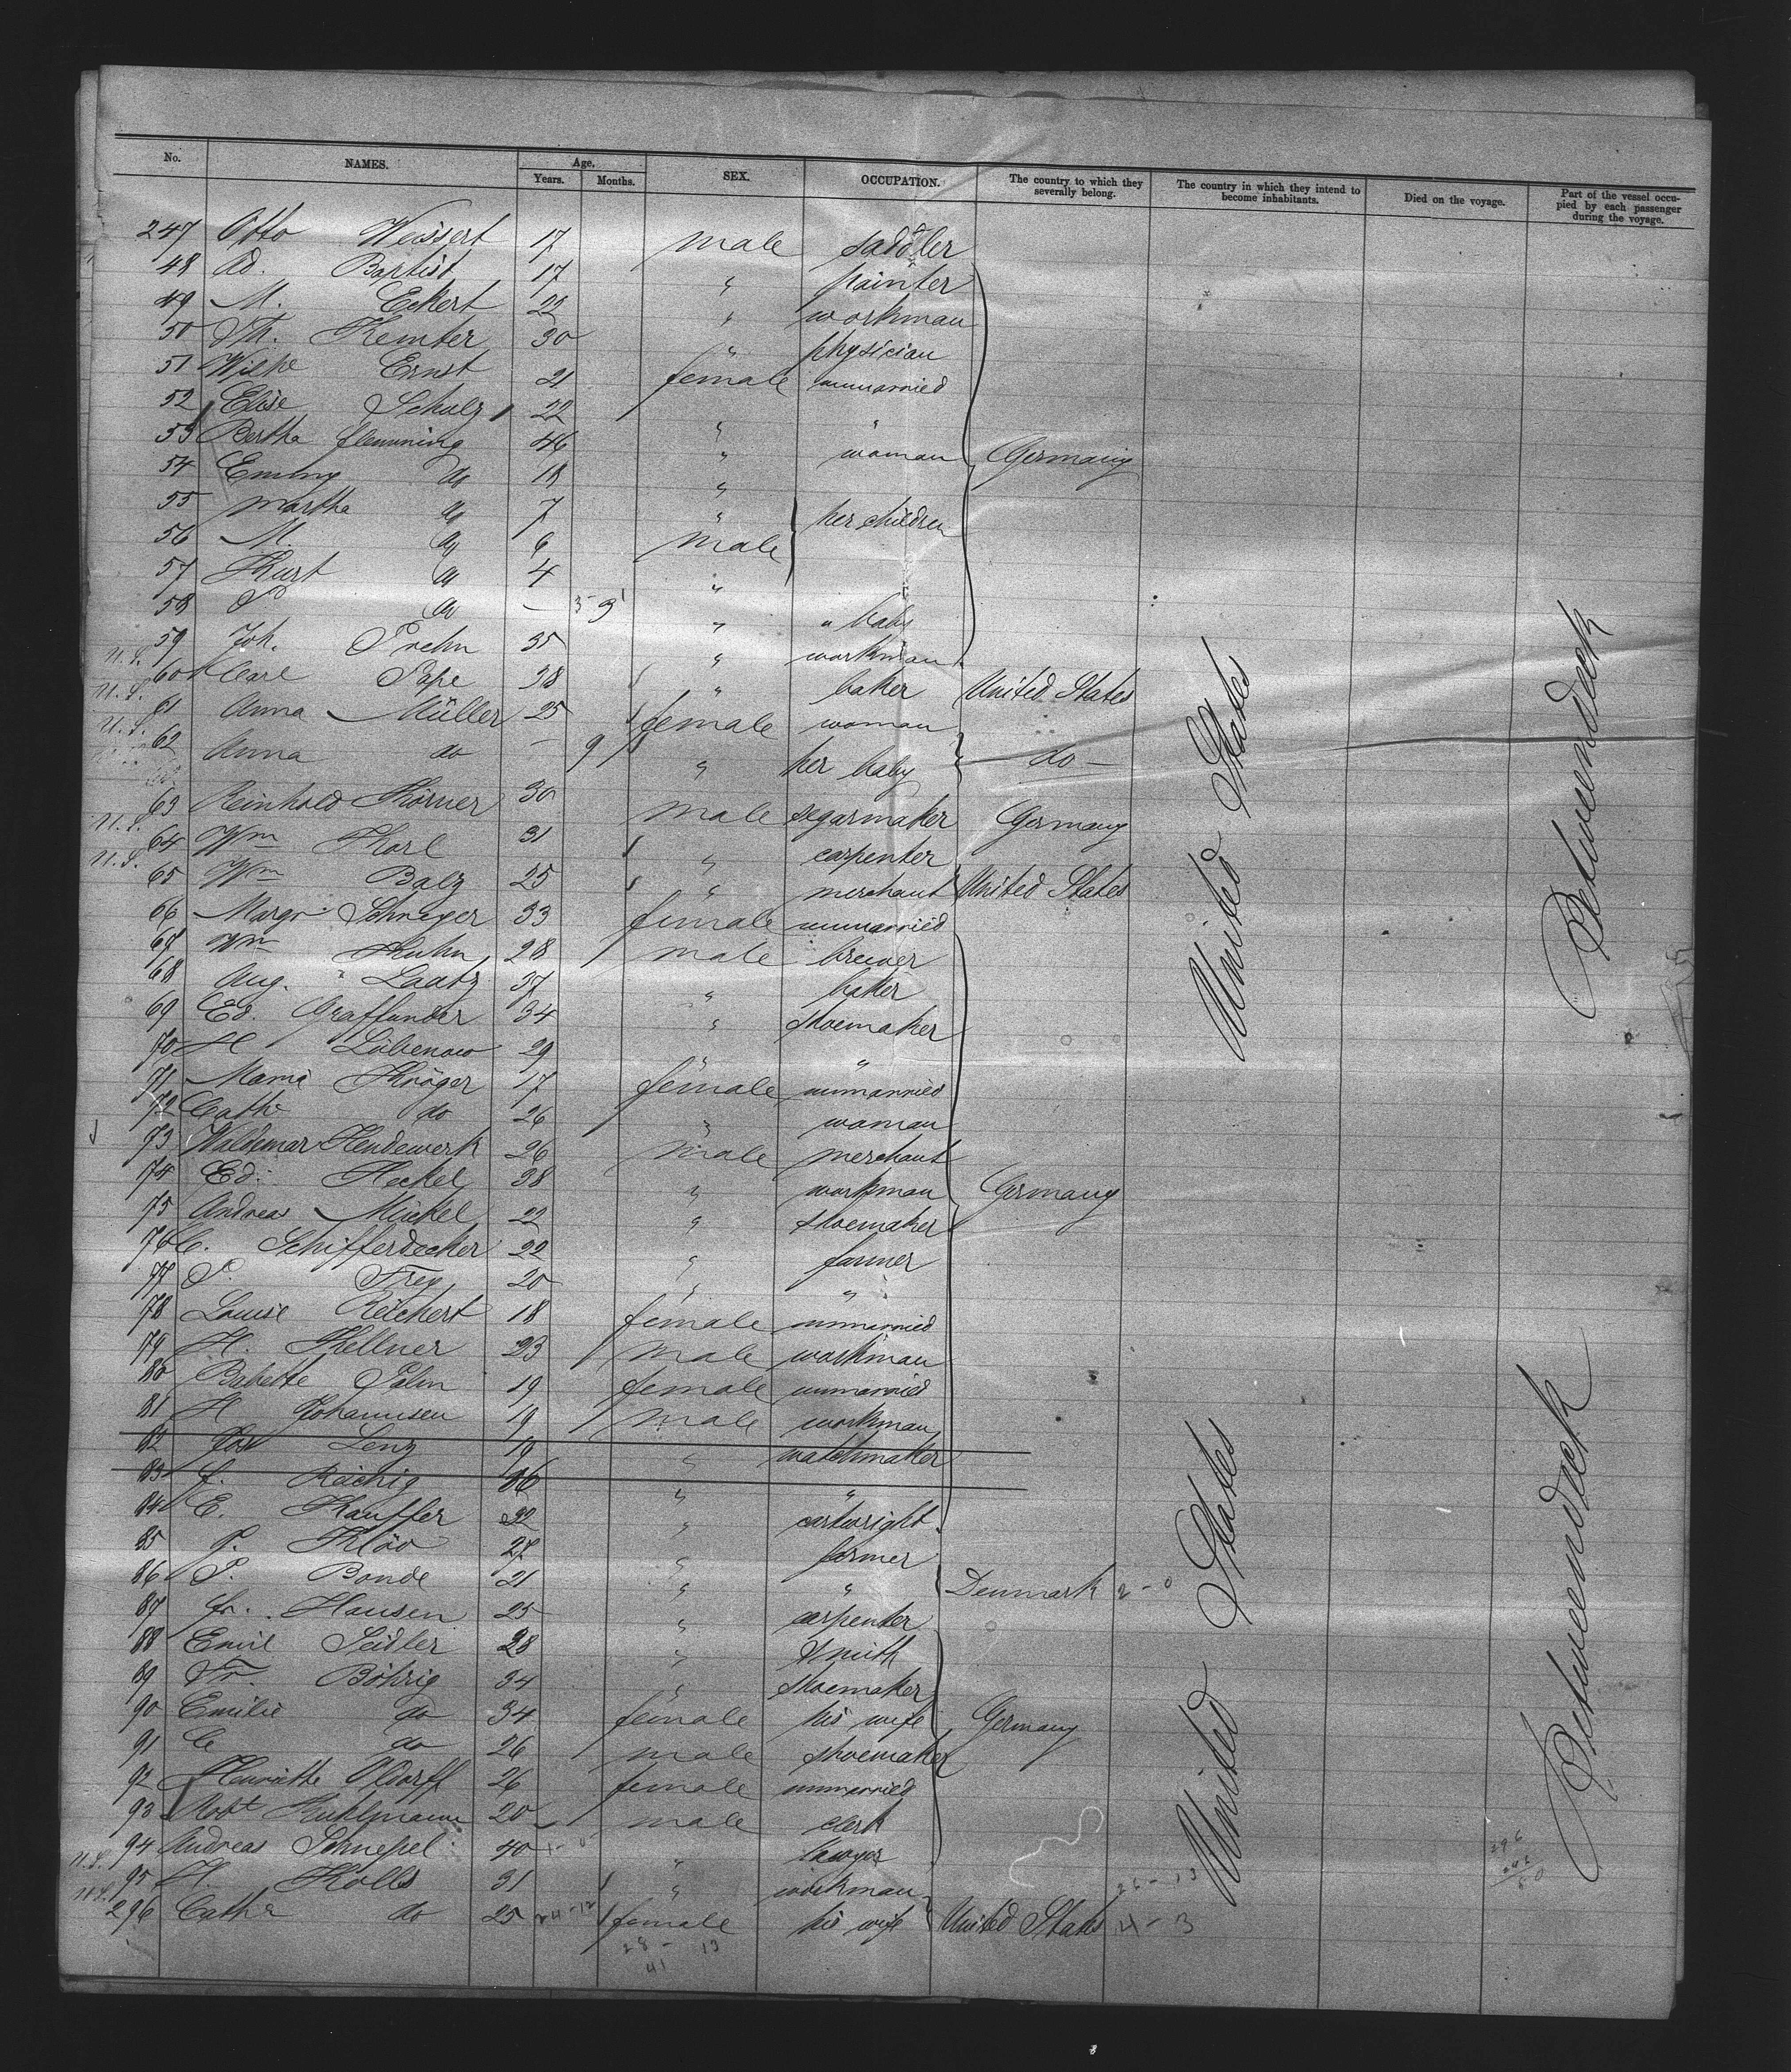 No. NAMES. Age. Years. Months. SEX. OCCUPATION. The country to which they severally belong. The country in which they intend to become inhabitants. Died on the voyage. Part of the vessel occupied by each passenger during the voyage.
247 Otto Weissert 17 male saddler
48 Ad. Baptist 17 " painter
49 M. Eckert 22 " workman
50 Th. Kemter 30 " physician
51 Wilhe Ernst 21 female unmarried
52 Elise Schulz 22 " "
53 Bertha Flemming 46 " woman Germany
54 Emmy do 18 "
55 Martha do 7 " her children
56 M. do 6 male
57 Kurt do 4 "
58 do — " " baby
59 Joh. Prehn 35 " workman
U.S. 60 Carl Pape 38 " baker United States
U.S. 61 Anna Müller 25 female woman
U.S. 62 Anna do — 9 " her baby — do —
63 Reinhold Körner 30 male segarmaker Germany
U.S. 64 Wm Karl 31 " carpenter
U.S. 65 Wm Balz 25 " merchant United States
66 Margr Schneyer 33 female unmarried
67 Wm Kuhn 28 male brewer
68 Aug. Laatz 37 " baker
69 Ed. Graffunder 34 " shoemaker
70 H Lübenow 29 " "
71 Maria Kröger 17 female unmarried
72 Cathe do 26 " woman
73 Waldemar Hendewerk 26 male merchant
74 Ed. Heckel 38 " workman Germany
75 Andreas Mückel 22 " shoemaker
76 C. Schifferdecker 22 " farmer
77 Frey 20 " "
78 Louise Reichert 18 female unmarried
79 H. Kellner 23 male workman
80 Babette Palm 19 female unmarried
81 H Johannsen 19 male workman
82 Jos Lenz 19 " watchmaker
83 f. Rächig "
84 E. Kauffer " cartwright
85 Klöv 27 " farmer
86 P. Bonde 21 " " Denmark 2-0
87 Hansen 25 " carpenter
88 Emil Seidler 28 " Smith
89 Fr. Böhrig 34 " shoemaker
90 Emilie do 34 female his wife Germany
91 C do 26 male shoemaker
92 Henriette 26 female unmarried
93 Robt Kuhlmann 20 male clerk
94 Andreas Schnepel 40 " lawyer
U.S. 95 H. Kolls 31 " workman
U.S. 296 Catha do 25 24-12 female his wife United States 4-3
28 - 13
41
26-13
United States
United States
Betweendeck
Betweendeck